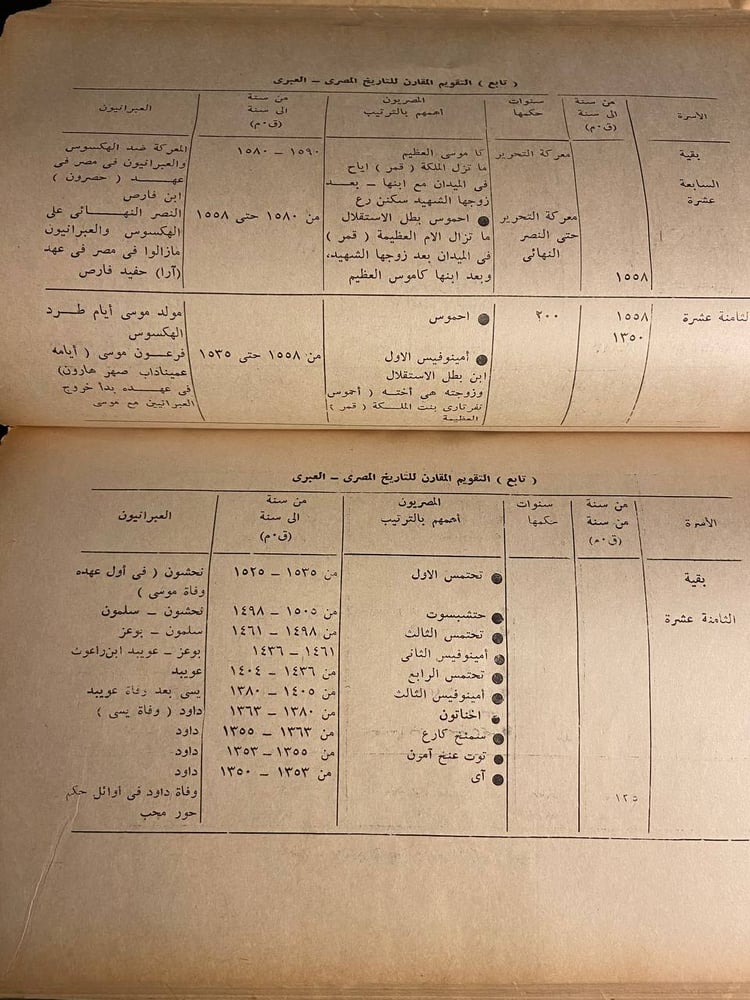 ( تابع ) التقويم المقارن للتاريخ المصرى – العبرى
الأسرة
من سنة
الى سنة
(ق٠م)
سنوات
حكمها
المصريون
أهمهم بالترتيب
من سنة
الى سنة
(ق٠م)
العبرانيون
بقية
السابعة
عشرة
١٥٥٨
معركة التحرير
معركة التحرير
حتى النصر
النهائى
كا موسى العظيم
ما تزل الملكة ( قمر ) اياح
فى الميدان مع ابنها – بعد
زوجها الشهيد سكنن رع
● احموس بطل الاستقلال
ما تزال الام العظيمة ( قمر )
فى الميدان بعد زوجها الشهيد،
وبعد ابنها كاموس العظيم
١٥٩٠ – ١٥٨٠
من ١٥٨٠ حتى ١٥٥٨
المعركة ضد الهكسوس
والعبرانيون فى مصر فى
عهد ( حصرون )
ابن فارص
النصر النهائى على
الهكسوس والعبرانيون
مازالوا فى مصر فى عهد
(آرا) حفيد فارص
الثامنة عشرة
١٥٥٨
١٣٥٠
٢٠٠
● احموس
● أمينوفيس الاول
ابن بطل الاستقلال
وزوجته هى أخته ( أحموس
نفرتارى بنت الملكة ( قمر )
العظيمة
من ١٥٥٨ حتى ١٥٣٥
مولد موسى أيام طرد
الهكسوس
فرعون موسى ( أيامه
عميناداب صهر هارون)
فى عهده بدا خروج
العبرانيين مع موسى
( تابع ) التقويم المقارن للتاريخ المصرى – العبرى
الأسرة
من سنة
من سنة
(ق٠م)
سنوات
حكمها
المصريون
أهمهم بالترتيب
من سنة
الى سنة
(ق٠م)
العبرانيون
بقية
الثامنة عشرة
● تحتمس الاول من ١٥٣٥ – ١٥٢٥ نحشون ( فى أول عهده
وفاة موسى )
● حتشبسوت من ١٥٠٥ – ١٤٩٨ نحشون – سلمون
● تحتمس الثالث من ١٤٩٨ – ١٤٦١ سلمون – بوعز
● أمينوفيس الثانى ١٤٦١ – ١٤٣٦ بوعز – عوبيد ابن راعوث
● تحتمس الرابع من ١٤٣٦ – ١٤٠٤ عوبيد
● أمينوفيس الثالث من ١٤٠٥ – ١٣٨٠ يسى بعد وفاة عوبيد
● اخناتون من ١٣٨٠ – ١٣٦٣ داود ( وفاة يسى )
● سمنخ كارع من ١٣٦٣ – ١٣٥٥ داود
● توت عنخ آمون من ١٣٥٥ – ١٣٥٣ داود
● آى من ١٣٥٣ – ١٣٥٠ داود
وفاة داود فى أوائل حكم
حور محب